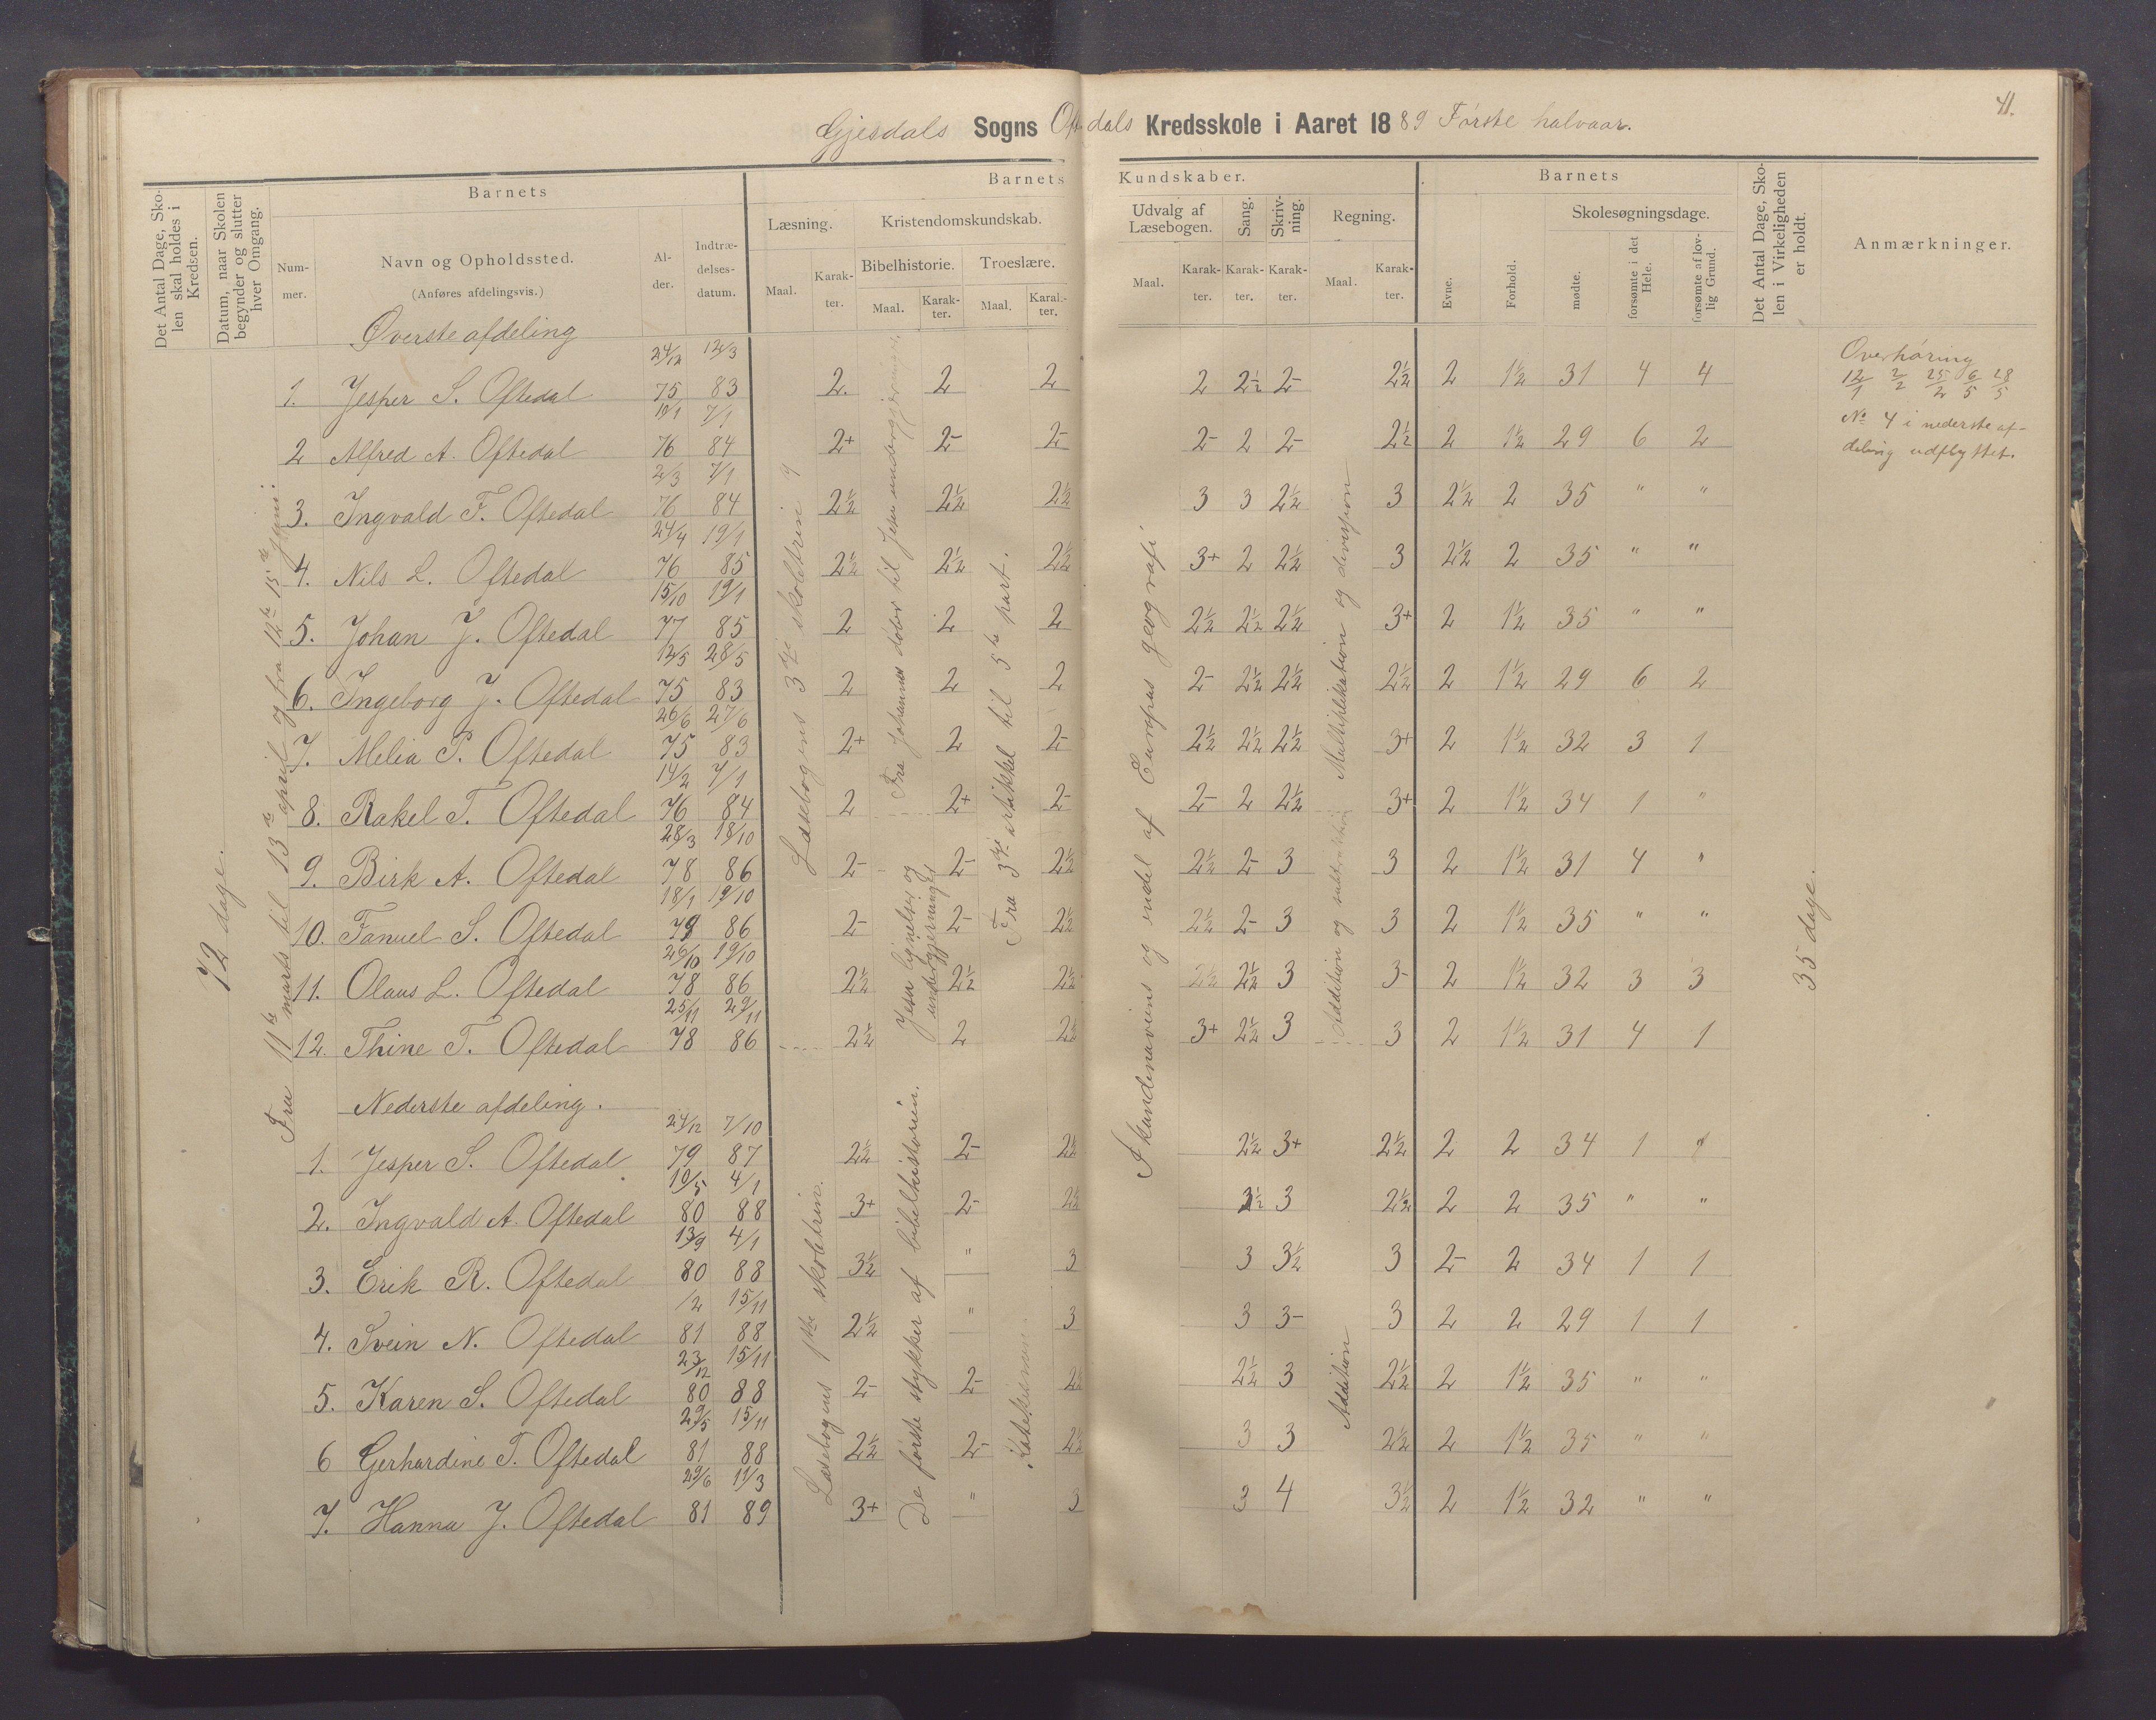 41.
Gjesdals Sogns Oftedals Kredsskole i Aaret 1889 Første halvaar.
Det Antal Dage, Skolen skal holdes i Kredsen.
Datum, naar Skolen begynder og slutter hver Omgang.
Barnets
Nummer.
Navn og Opholdssted.
(Anføres afdelingsvis.)
Alder.
Indtrædelsesdatum.
Barnets Kundskaber.
Læsning.
Maal. Karakter.
Kristendomskundskab.
Bibelhistorie. Troeslære.
Maal. Karakter. Maal. Karakter.
Udvalg af Læsebogen.
Maal. Karakter.
Sang. Karakter.
Skrivning. Karakter.
Regning.
Maal. Karakter.
Barnets
Evne. Forhold.
Skolesøgningsdage.
mødte. forsømte i det Hele. forsømte af lovlig Grund.
Det Antal Dage, Skolen i Virkeligheden er holdt.
Anmærkninger.
72 dage.
Fra 11te marts til 13de april og fra 12te 15de juni.
Øverste afdeling
1. Jesper S. Oftedal 24/12 75 12/3 83 2 2 2 2 2½ 2- 2½ 2 1½ 31 4 4
2 Alfred A. Oftedal 10/1 76 7/1 84 2+ 2- 2- 2- 2 2- 2½ 2 1½ 29 6 2
3. Ingvald F. Oftedal 2/3 76 7/1 84 2½ 2½ 2½ 3 3 2½ 3 2½ 2 35 " "
4. Nils L. Oftedal 24/4 76 19/1 85 2½ 2½ 2½ 3+ 2 2½ 3 2½ 2 35 " "
5. Johan J. Oftedal 15/10 77 19/1 85 2 2 2 2½ 2½ 2½ 3+ 2 1½ 35 " "
6. Ingeborg J. Oftedal 12/5 75 28/5 83 2 2 2 2- 2½ 2½ 2½ 2 1½ 29 6 2
7. Melia P. Oftedal 26/6 75 27/6 83 2+ 2 2- 2½ 2½ 2½ 3+ 2 1½ 32 3 1
8. Rakel T. Oftedal 14/2 76 7/1 84 2 2+ 2- 2- 2 2½ 3+ 2 1½ 34 1 "
9. Birk A. Oftedal 28/3 78 18/10 86 2- 2- 2½ 2½ 2- 3 3 2 1½ 31 4 "
10. Fanuel S. Oftedal 18/1 79 19/10 86 2- 2- 2½ 2½ 2- 3 3 2 1½ 35 " "
11. Olaus L. Oftedal 26/10 78 19/10 86 2½ 2½ 2½ 2½ 2½ 3 3- 2 1½ 32 3 3
12. Thine T. Oftedal 25/11 78 29/11 86 2½ 2 2½ 3+ 2½ 3 3 2 1½ 31 4 1
Læsebogens 3dje skoletrin
Fra Johannes døber til Jesu undergjerninger.
Jesu lignelser og undergjerninger
Fra 3dje artikkel til 5te part.
Skandenaviens og endel af Europas geografi
Multiplikation og divisjon
Addition og subtraktion
35 dage.
Overhøring
12/1 2/2 25/2 6/5 28/5
No 4 i nederste afdeling udflyttet.
Nederste afdeling.
1. Jesper S. Oftedal 24/12 79 7/10 87 2½ 2- 2½ 2½ 3+ 2½ 2 2 34 1
2. Ingvald A. Oftedal 10/5 80 4/1 88 3+ 2- 2½ 3 2½ 2 2 35 " "
3. Erik R. Oftedal 13/9 80 4/1 88 3½ " 3 3 3½ 3 2- 2 34 1 1
4. Svein N. Oftedal /2 81 15/11 88 2½ " 3 3 3- 3 2 2 29 1 1
5. Karen S. Oftedal 23/12 80 15/11 88 2- 2- 2½ 2½ 3 2½ 2 1½ 35 " "
6 Gerhardine T. Oftedal 29/5 81 15/11 88 2½ 2- 2½ 3 3 2½ 2 1½ 35 " "
7. Hanna J. Oftedal 29/6 81 11/3 89 3+ " 3 3 4 3½ 2 1½ 32 " "
Læsebogens 1ste skoletrin.
De første stykker af bibelhistorien.
Katekismen.
Addition